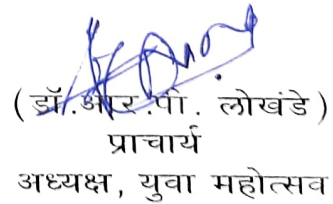 (डॉ.आर.पी. लोखंडे)
प्राचार्य
अध्यक्ष, युवा महोत्सव